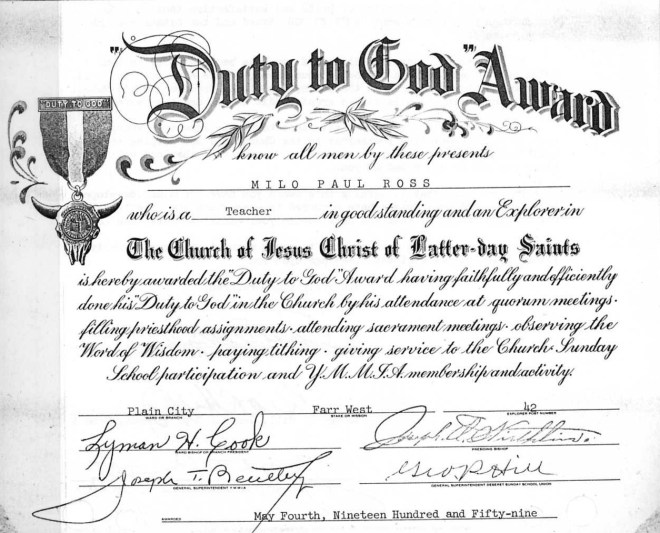 "Duty to God" Award
"DUTY TO GOD"
know all men by these presents
MILO PAUL ROSS
who is a Teacher in good standing and an Explorer in
The Church of Jesus Christ of Latter-day Saints
is hereby awarded the "Duty to God" Award having faithfully and efficiently
done his "Duty to God" in the Church by his attendance at quorum meetings·
filling priesthood assignments· attending sacrament meetings· observing the
Word of Wisdom· paying tithing· giving service to the Church· Sunday
School participation and Y.M.M.I.A. membership and activity.
Plain City Farr West 42
WARD OR BRANCH STAKE OR MISSION EXPLORER POST NUMBER
Lyman H. Cook Joseph L. Wirthlin.
WARD BISHOP OR BRANCH PRESIDENT PRESIDING BISHOP
Joseph T. Bentley Geo R Hill
GENERAL SUPERINTENDENT Y.M.M.I.A. GENERAL SUPERINTENDENT DESERET SUNDAY SCHOOL UNION
AWARDED May Fourth, Nineteen Hundred and Fifty-nine